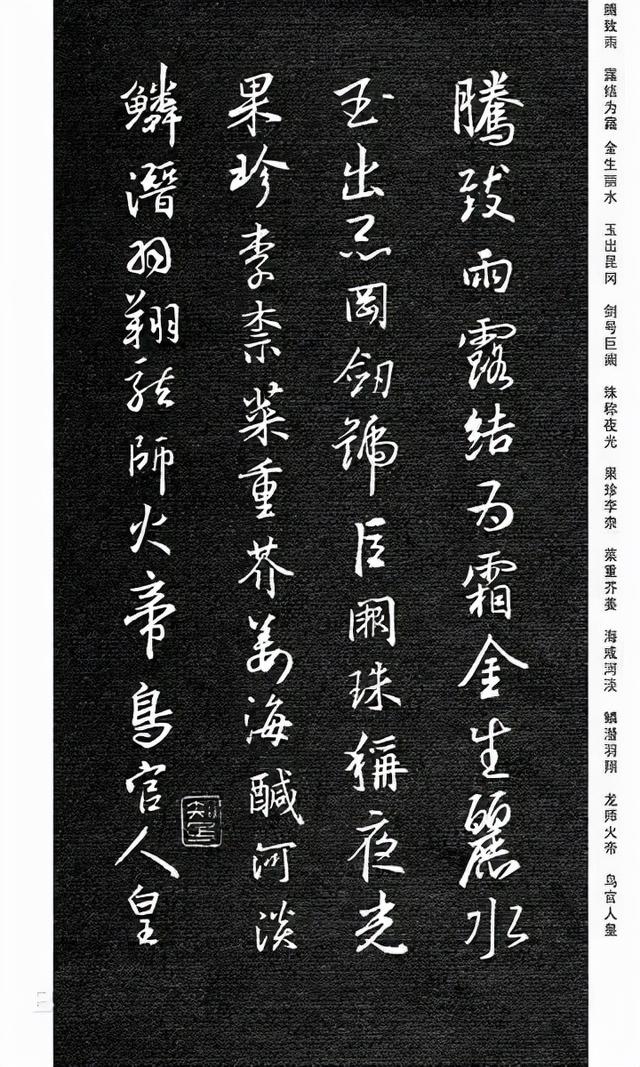 腾致雨 露结为霜 金生丽水 玉出昆冈 剑号巨阙 珠称夜光 果珍李柰 菜重芥姜 海咸河淡 鳞潜羽翔 龙师火帝 鸟官人皇
騰致雨露結為霜金生麗水
玉出昆岡劒號巨闕珠稱夜光
果珍李柰菜重芥姜海鹹河淡
鱗潛羽翔龍師火帝鳥官人皇